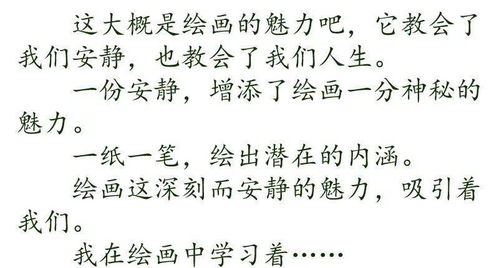 这大概是绘画的魅力吧，它教会了
我们安静，也教会了我们人生。
一份安静，增添了绘画一分神秘的
魅力。
一纸一笔，绘出潜在的内涵。
绘画这深刻而安静的魅力，吸引着
我们。
我在绘画中学习着……